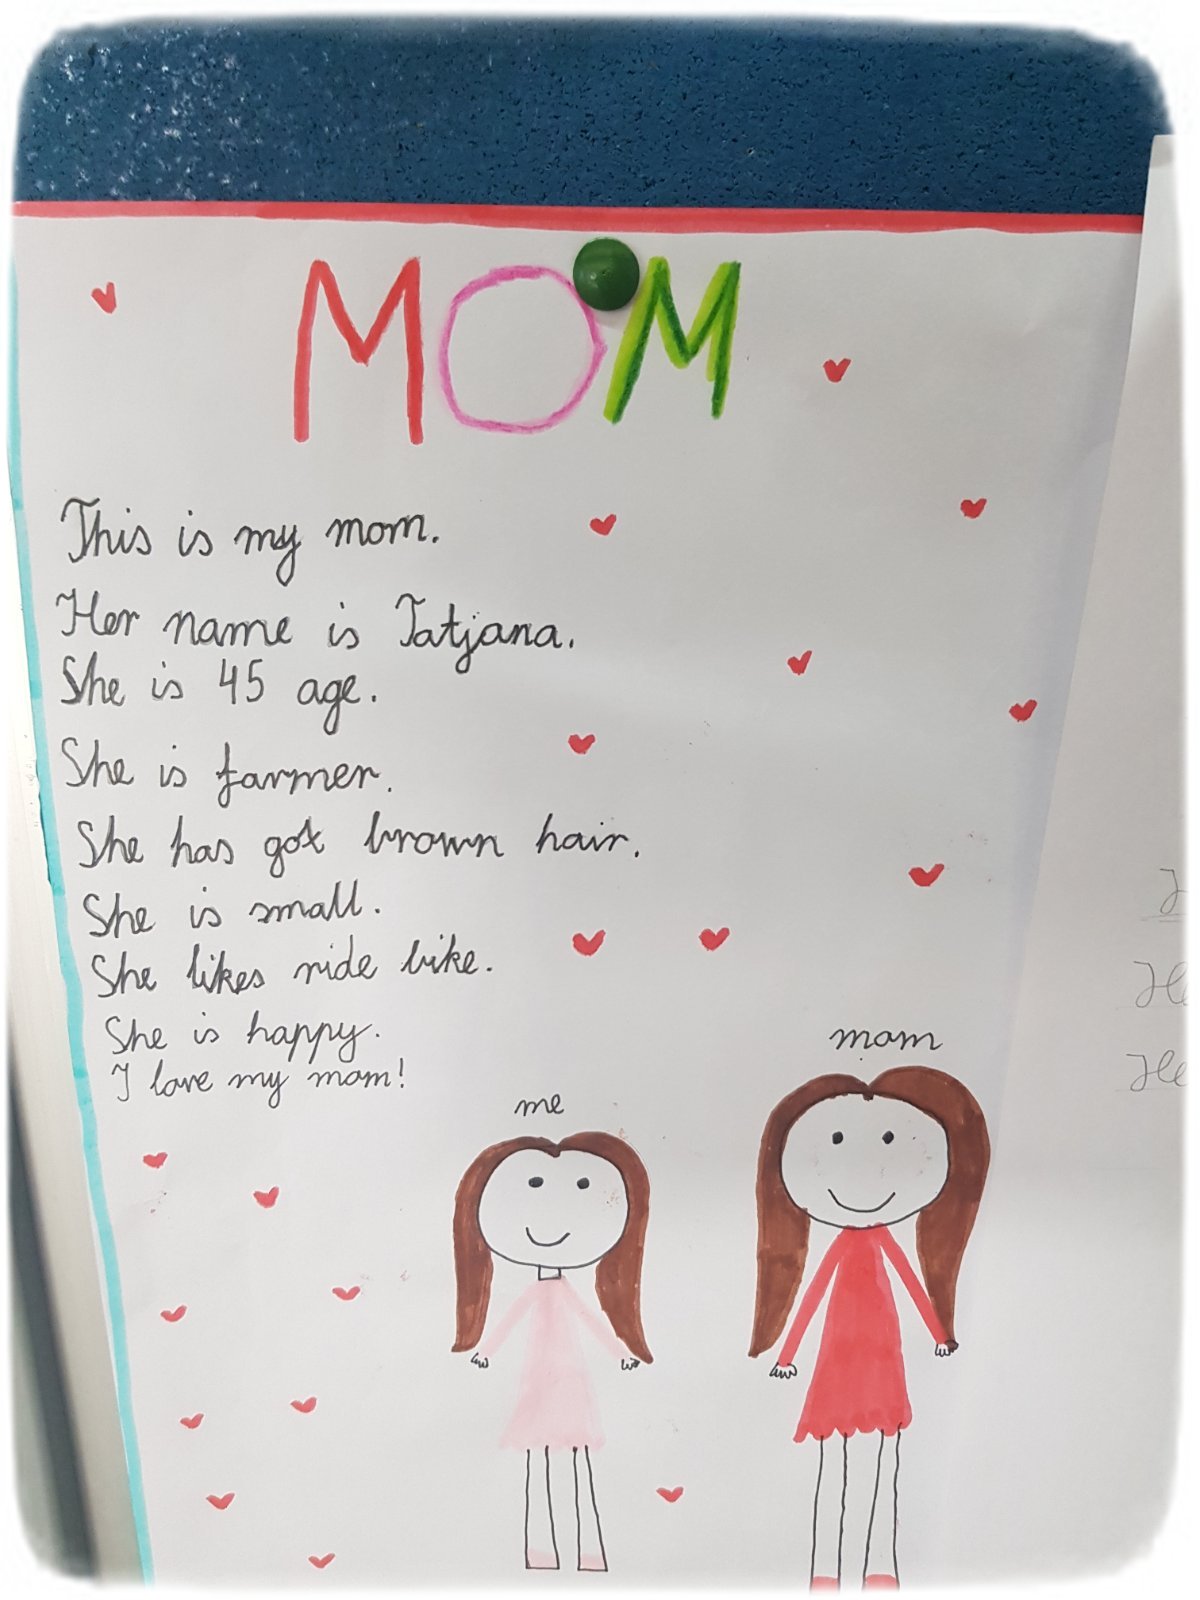 MOM
This is my mom.
Her name is Tatjana.
She is 45 age.
She is farmer.
She has got brown hair.
She is small.
She likes ride bike.
She is happy.
I love my mom!
me
mom